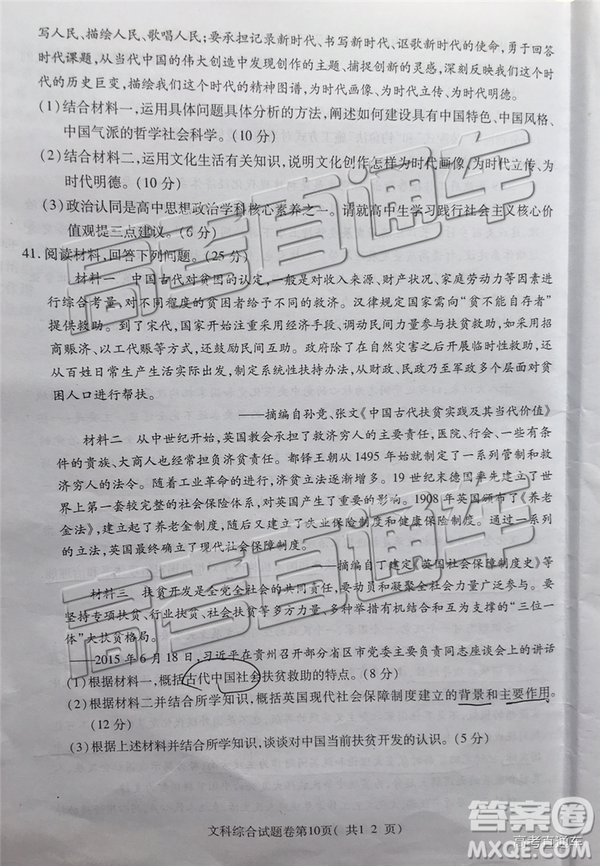 写人民、描绘人民、歌唱人民；要承担记录新时代、书写新时代、讴歌新时代的使命，勇于回答
时代课题，从当代中国的伟大创造中发现创作的主题、捕捉创新的灵感，深刻反映我们这个时
代的历史巨变，描绘我们这个时代的精神图谱，为时代画像、为时代立传、为时代明德。
(1)结合材料一，运用具体问题具体分析的方法，阐述如何建设具有中国特色、中国风格、
中国气派的哲学社会科学。(10分)
(2)结合材料二，运用文化生活有关知识，说明文化创作怎样为时代画像、为时代立传、为
时代明德。(10分)
(3)政治认同是高中思想政治学科核心素养之一。请就高中生学习践行社会主义核心价
值观提三点建议。(6分)
41. 阅读材料，回答下列问题。(25分)
材料一 中国古代对贫困的认定，一般是对收入来源、财产状况、家庭劳动力等因素进
行综合考量，对不同程度的贫困者给予不同的救济。汉律规定国家需向“贫不能自存者”
提供救助。到了宋代，国家开始采用经济手段、调动民间力量参与扶贫救助，比如采用招
商赈济、以工代赈等方式，还鼓励民间互助。政府除了在自然灾害之后开展临时性救助，还
从百姓日常生产生活实际出发，制定系统性扶持办法，从财政、民政乃至军政多个层面对贫
困人口进行帮扶。
——摘编自孙兢、张文《中国古代扶贫实践及其当代价值》
材料二 从中世纪开始，英国教会承担了救济穷人的主要责任，医院、行会、有一定条
件的贵族、大商人也都负担济贫责任。都铎王朝从1495年始先后颁布了一系列的法令以救
济穷人的法令。随着工业革命的进行，济贫立法不断发展。19世纪末德国率先建立了世
界上第一套较完整的社会保险体系，对英国产生了重要的影响。1908年英国颁布了《养老
金法》，建立起了养老金制度，随后又出台失业保险制度和健康保险制度。通过一系列的
立法，英国最终确立了现代社会保障制度。
——摘编自丁建定《英国社会保障制度史》等
材料三 扶贫开发是全党全社会的共同责任，要动员和凝聚全社会力量广泛参与。要
坚持专项扶贫、行业扶贫、社会扶贫等多方力量、多种举措有机结合和互为支撑的“三位一
体”大扶贫格局。
——2015年6月18日，习近平在贵州召开部分省区市党委主要负责同志座谈会上的讲话
(1)根据材料一，概括古代中国社会扶贫救助的特点。(8分)
(2)根据材料二并结合所学知识，概括英国现代社会保障制度建立的背景和主要作用。
(12分)
(3)根据上述材料并结合所学知识，谈谈对中国当前扶贫开发的认识。(5分)
文科综合试题卷第10页( 共1 2 页)
高考直通车
高考直通车
高考直通车
答案圈
高考直通车